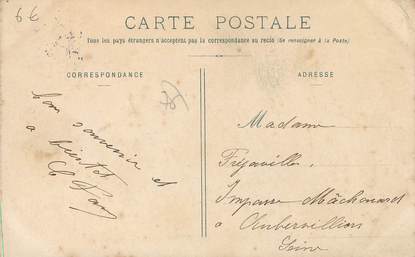 6€
CARTE POSTALE
Tous les pays étrangers n'acceptent pas la correspondance au recto (Se renseigner à la Poste)
CORRESPONDANCE
ADRESSE
bon souvenir et
a bientot
Madame
Fréjavilles,
Impasse Mâchouard
a Aubervilliers
Seine